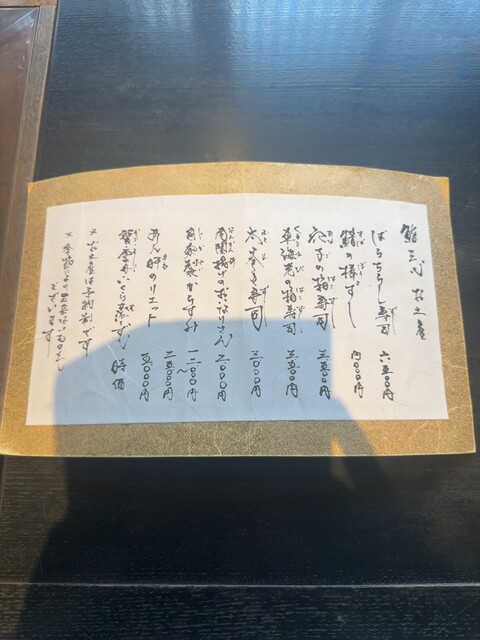 鮨三心 お土産
ばらちらし寿司 六五〇〇円
鯖の棒すし 四〇〇〇円
穴子の箱寿司 三五〇〇円
車海老の箱寿司 三五〇〇円
太巻き寿司 三〇〇〇円
南関揚げのおいなりさん 二〇〇〇円
自家製からすみ 一二〇〇〇円〜
あん肝のリエット 二五〇〇円
五〇〇〇円
いくら 時価
※お土産は予約制です